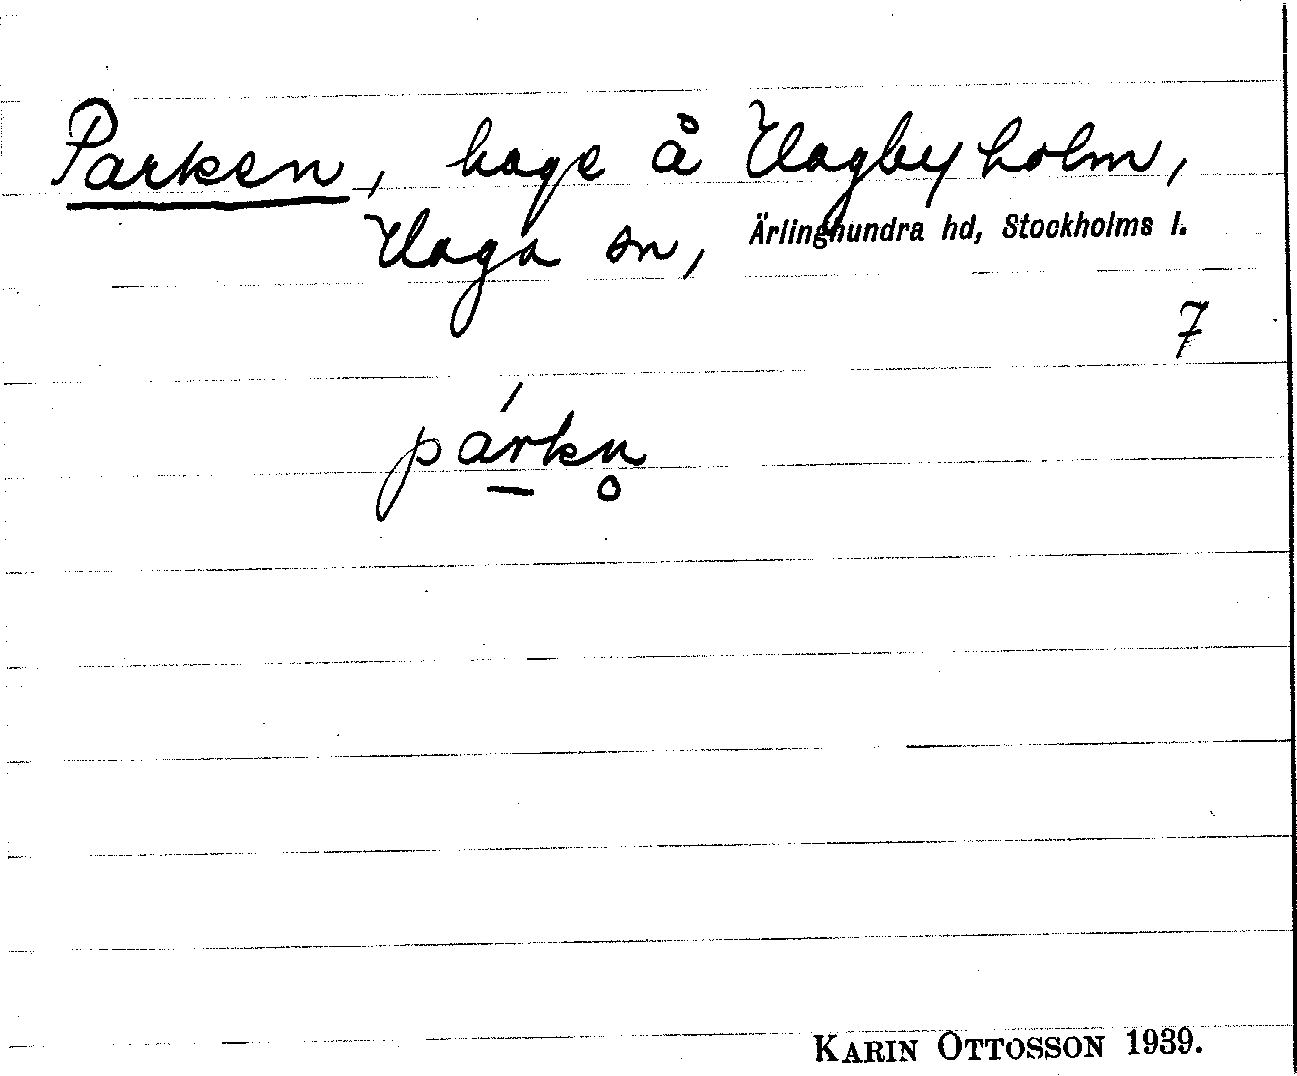 Parken, hage å Hagbyholm,
Haga sn, Ärlinghundra hd, Stockholms l.
7
párkn̥
KARIN OTTOSSON 1939.